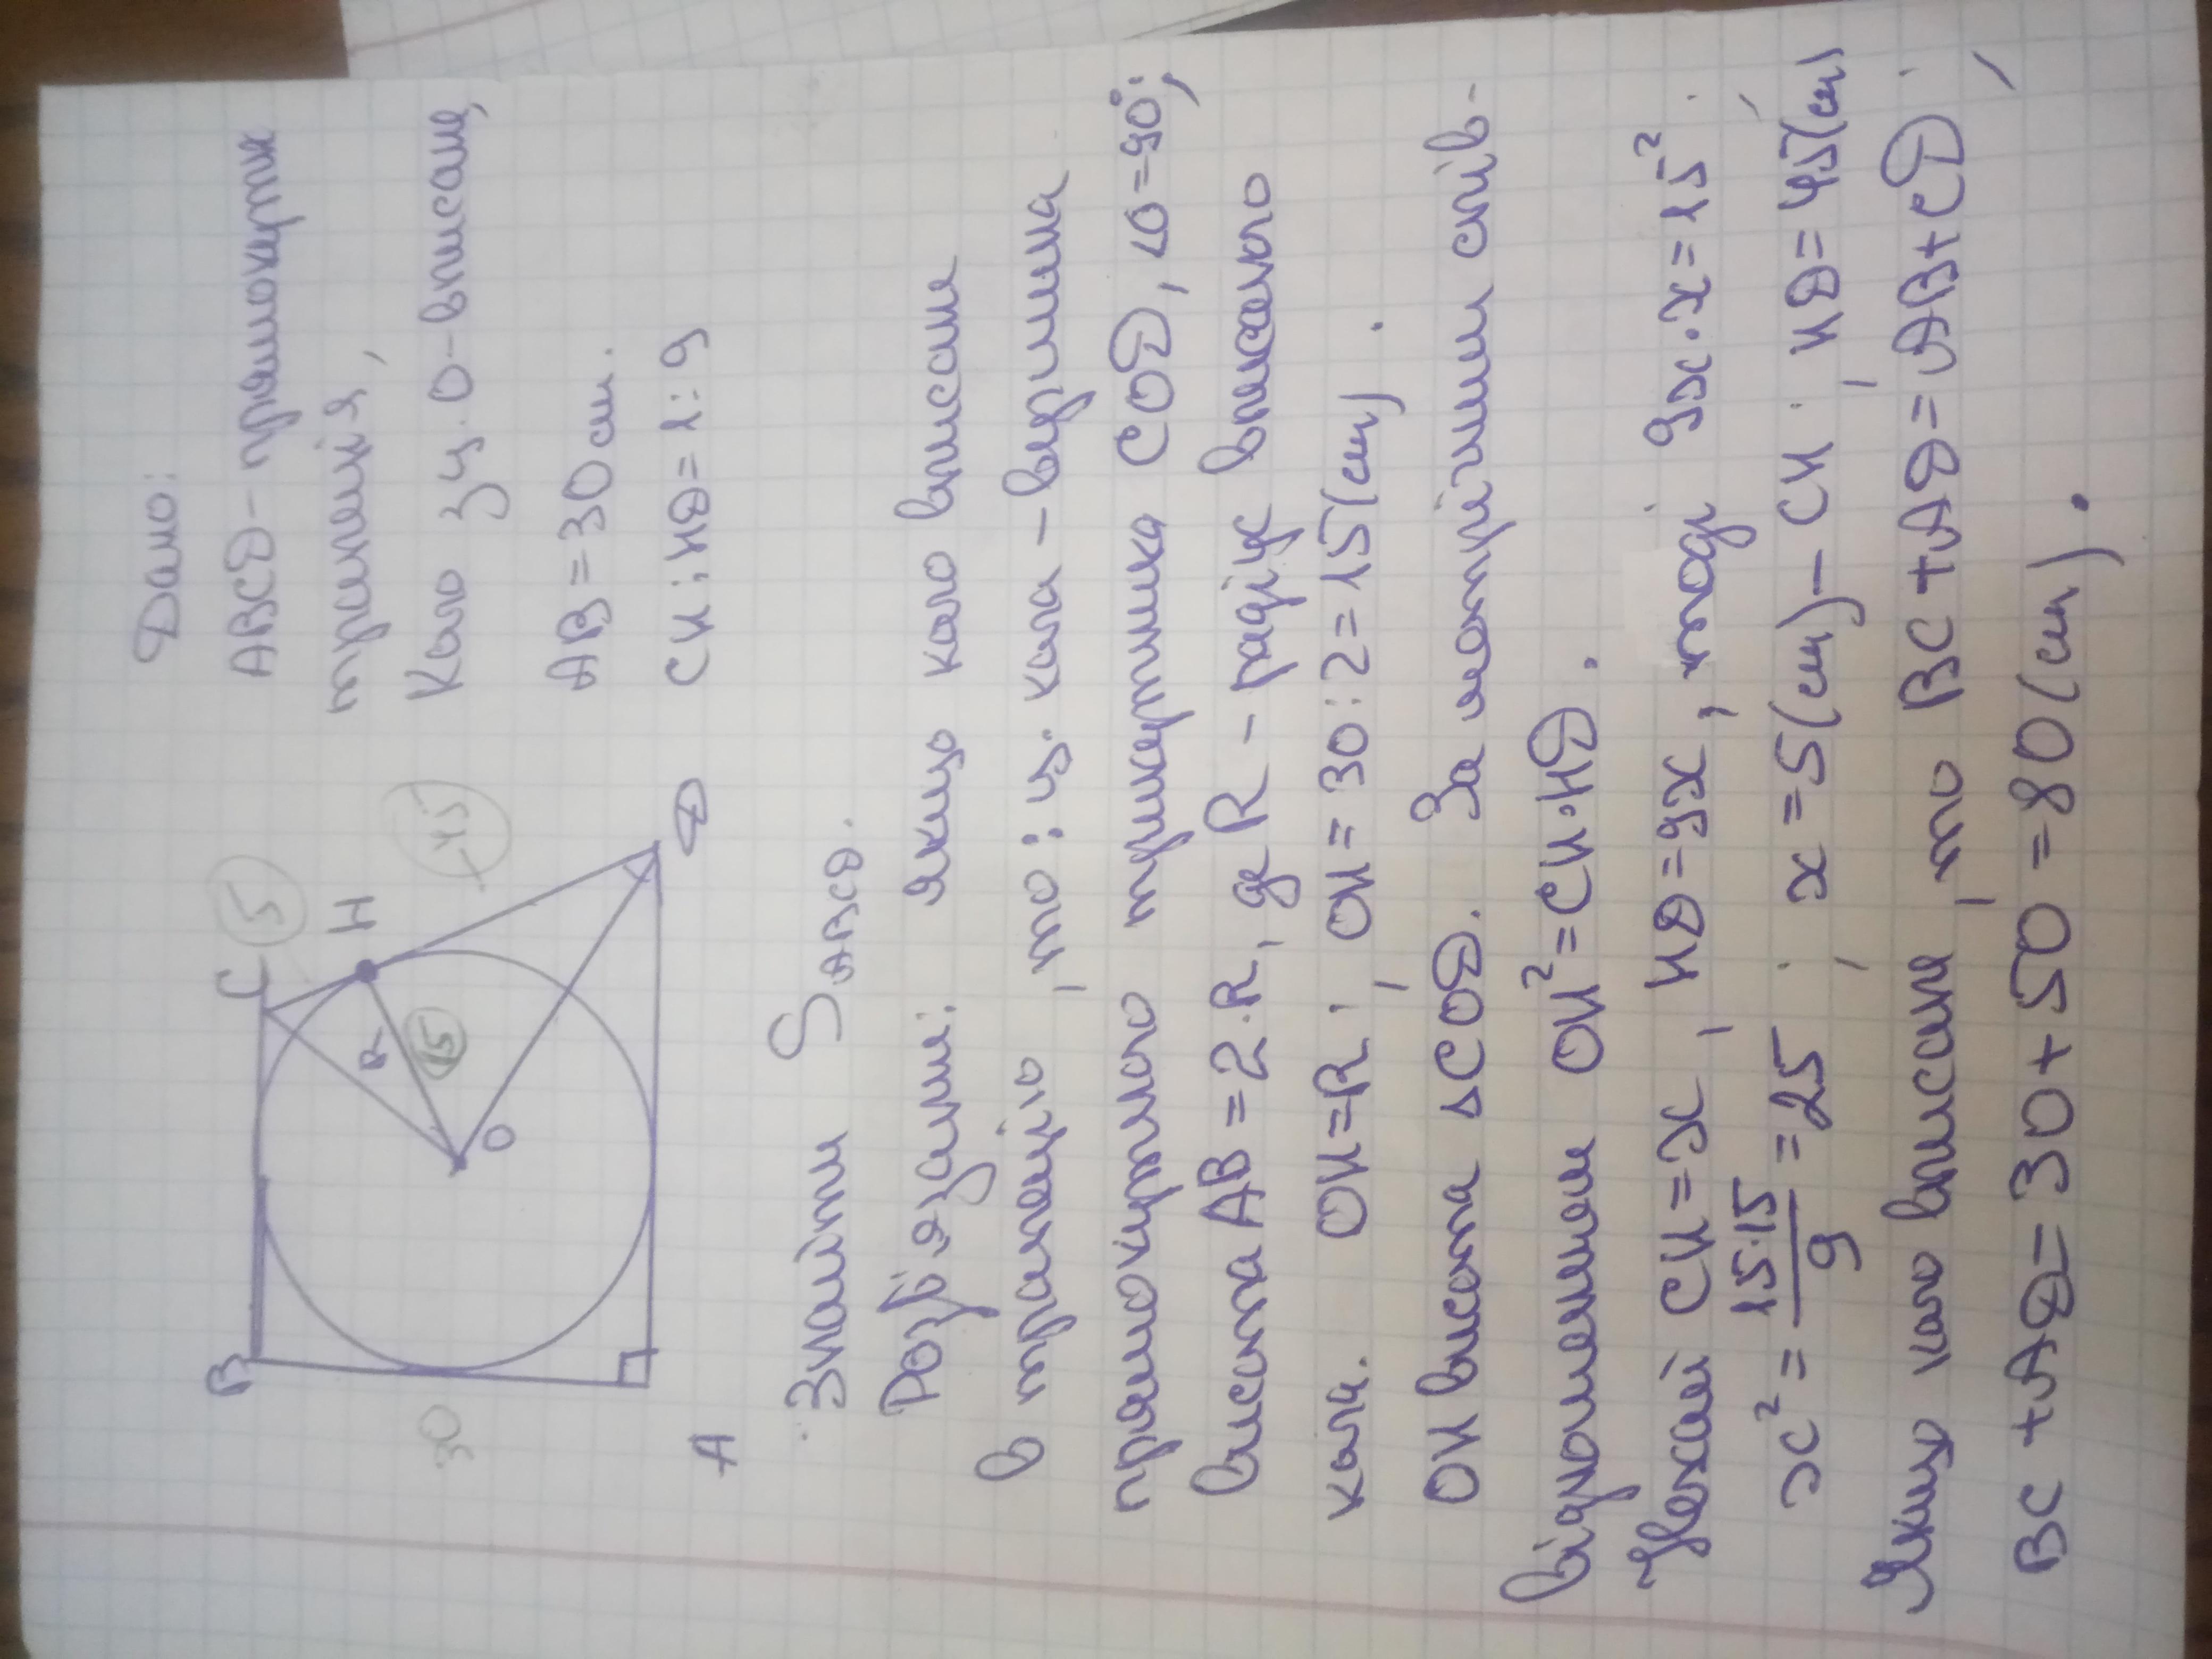 Дано:
ABCD - прямокутн
трапеція,
Коло з ц. O - вписане,
AB = 30 см.
CH : HD = 1 : 9
B
C
5
H
45
R
15
O
30
A
D
Знайти S ABCD.
Розв'язання: якщо коло вписане
в трапецію, то: ц. кола - вершина
прямокутного трикутника COD, ∠O = 90°;
висота AB = 2·R, де R - радіус вписаного
кола. OH = R; OH = 30 : 2 = 15 (см).
OH висота ΔCOD. За метричними спів-
відношеннями OH² = CH·HD.
Нехай CH = x, HD = 9x, тоді 9x·x = 15².
x² = 15·15/9 = 25; x = 5 (см) - CH; HD = 45 (см)
Якщо коло вписане, то BC + AD = AB + CD;
BC + AD = 30 + 50 = 80 (см).